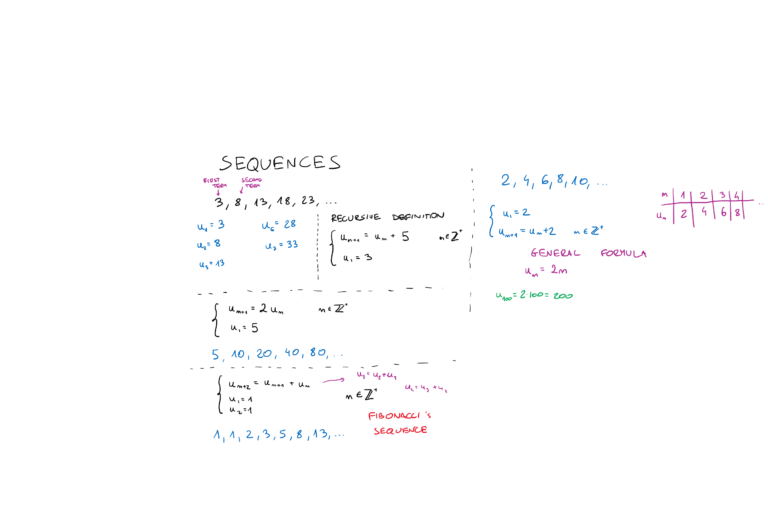 SEQUENCES
FIRST TERM
SECOND TERM
3, 8, 13, 18, 23, ...
u₁ = 3
u₂ = 8
u₃ = 13
u₆ = 28
u₇ = 33
RECURSIVE DEFINITION
uₙ₊₁ = uₙ + 5 n∈ℤ⁺
u₁ = 3
uₙ₊₁ = 2uₙ n∈ℤ⁺
u₁ = 5
5, 10, 20, 40, 80, ...
uₙ₊₂ = uₙ₊₁ + uₙ
u₁ = 1
u₂ = 1
n∈ℤ⁺
u₃ = u₂ + u₁
u₄ = u₃ + u₂
FIBONACCI'S
SEQUENCE
1, 1, 2, 3, 5, 8, 13, ...
2, 4, 6, 8, 10, ...
u₁ = 2
uₙ₊₁ = uₙ + 2 n∈ℤ⁺
GENERAL FORMULA
uₙ = 2n
u₁₀₀ = 2·100 = 200
n 1 2 3 4
uₙ 2 4 6 8 ...